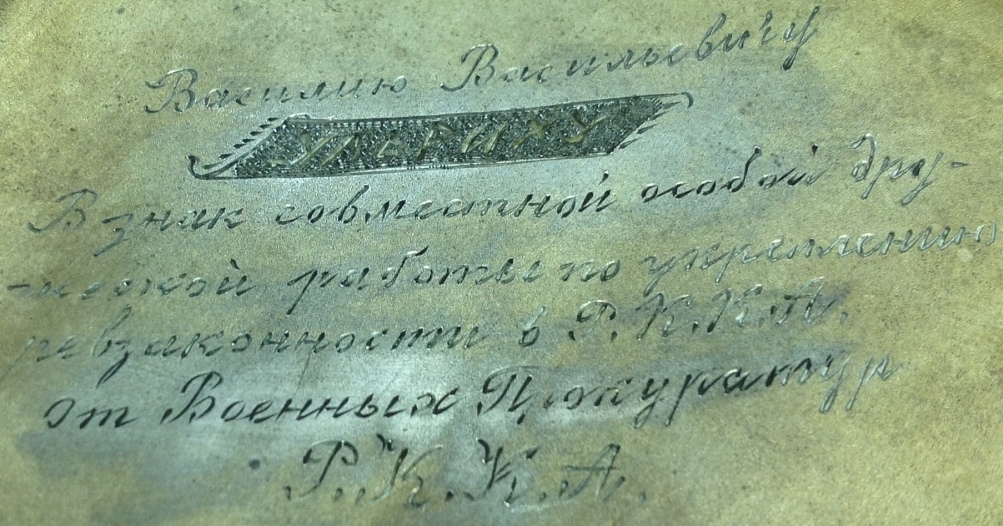 Василию Васильевичу
УЛЬРИХУ
В знак совместной особой дру-
-жеской работы по укреплению
ревзаконности в Р.К.К.А.
от Военных Прокуратур
Р.К.К.А.